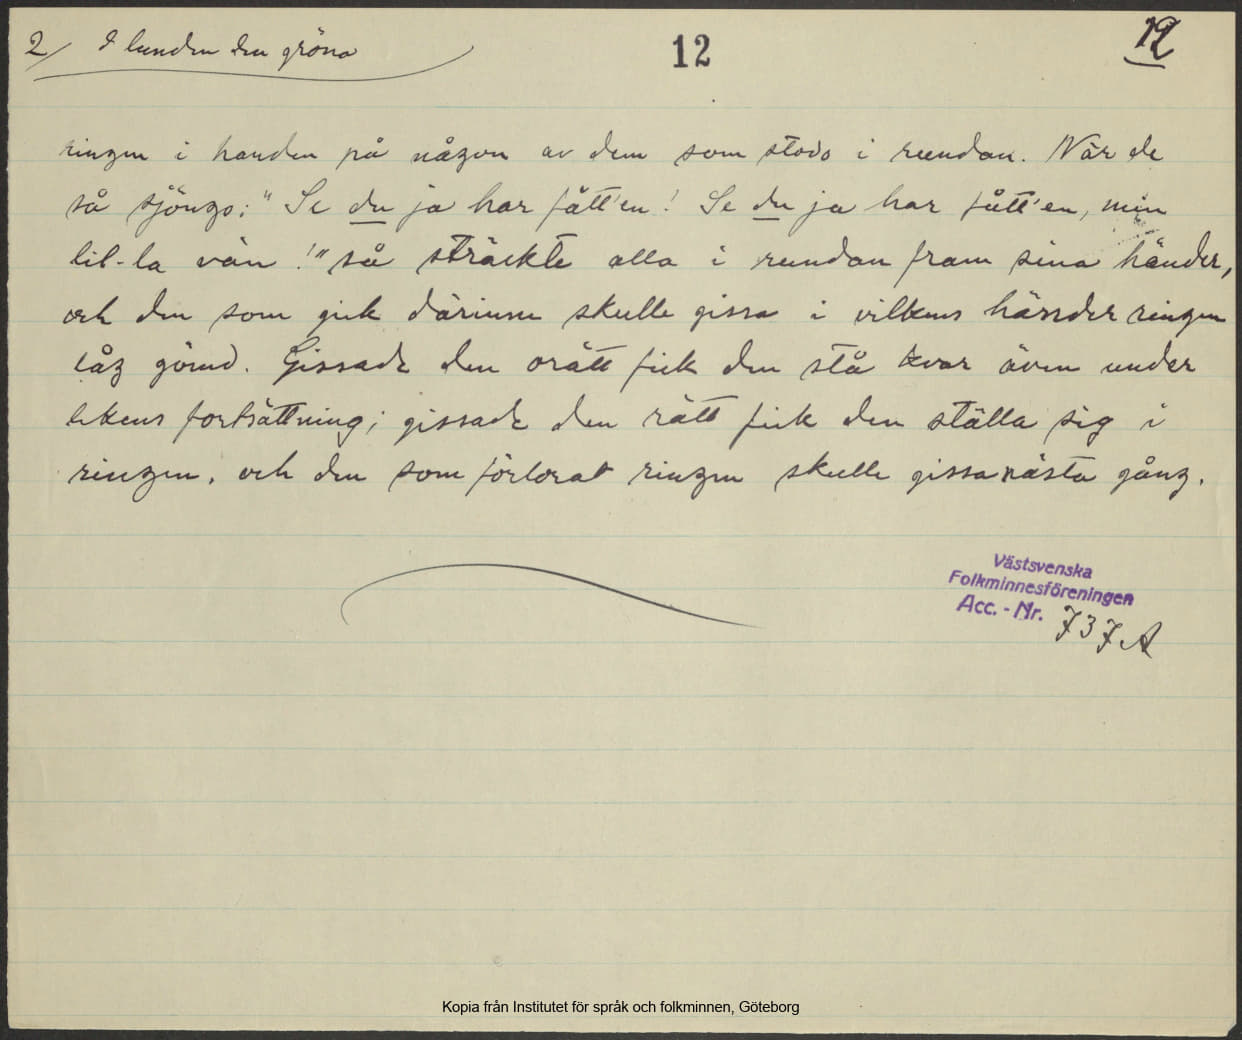 2/ I lunden den gröna
12
12
ringen i handen på någon av dem som stodo i rundan. När de
så sjöngo: "Se du ja har fått'en! Se du ja har fått'en, min
lil-la vän!" så sträckte alla i rundan fram sina händer,
och den som gick därinne skulle gissa i vilkens händer ringen
låg gömd. Gissade den orätt fick den stå kvar även under
lekens fortsättning; gissade den rätt fick den ställa sig i
ringen, och den som förlorat ringen skulle gissa nästa gång.
Västsvenska
Folkminnesföreningen
Acc. - Nr. 737A
Kopia från Institutet för språk och folkminnen, Göteborg